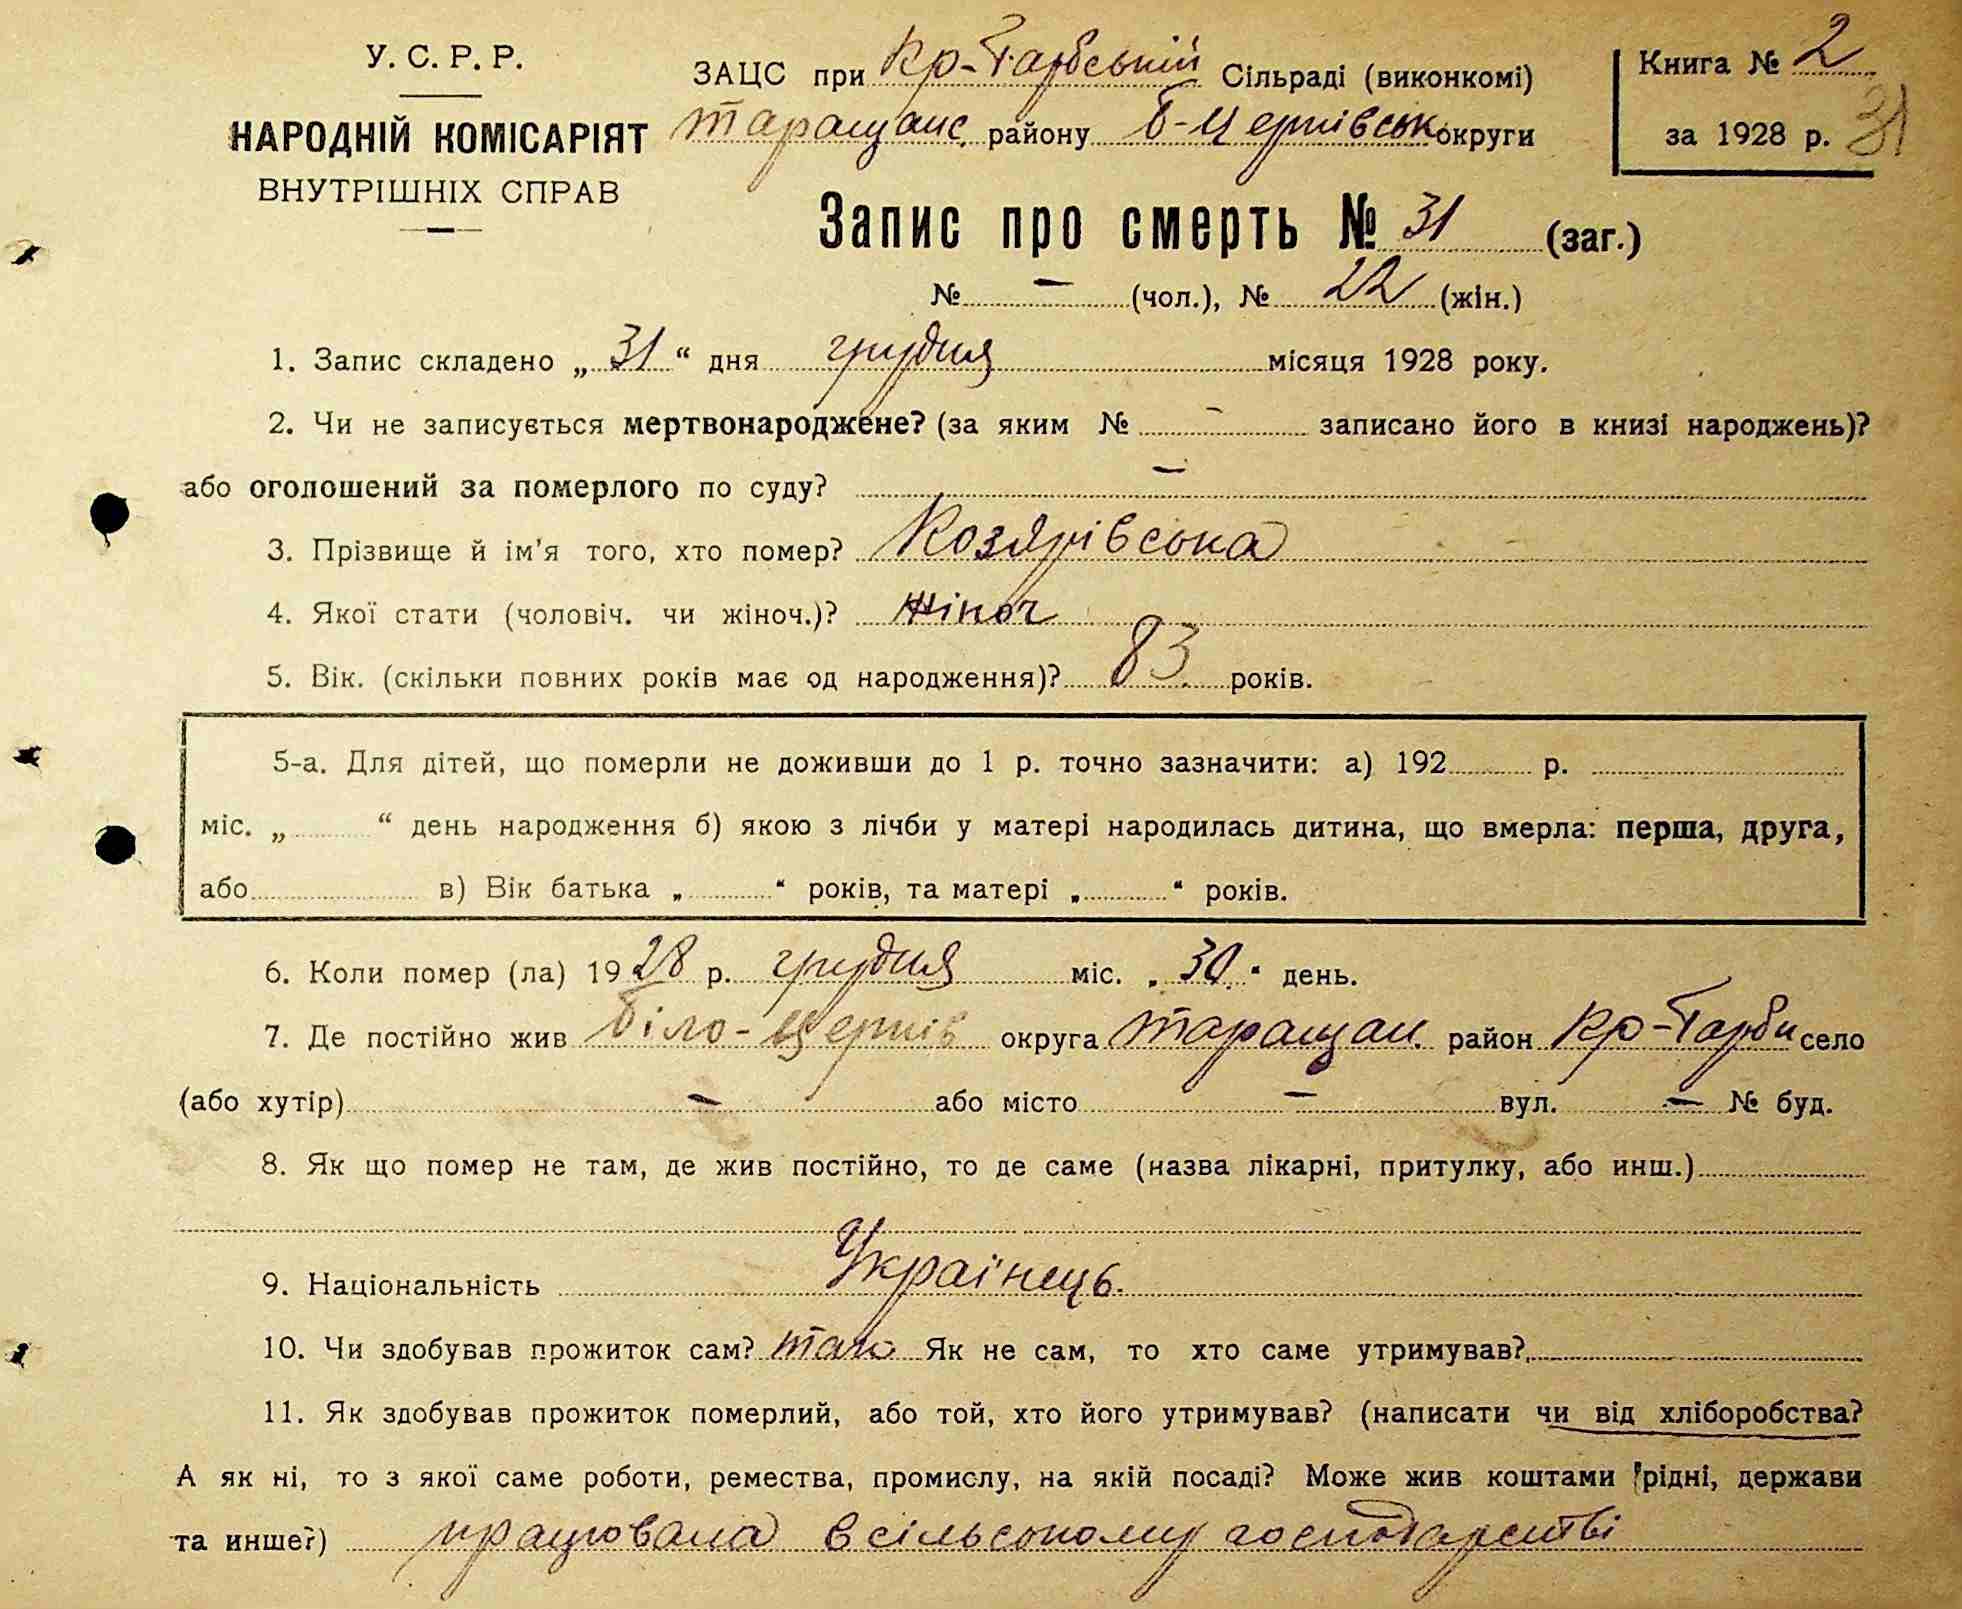 У. С. Р. Р.
НАРОДНІЙ КОМІСАРІЯТ
ВНУТРІШНІХ СПРАВ
ЗАЦС при Кр-Гарбській Сільраді (виконкомі)
таращанс. району Б-Церківськ округи
Книга № 2
за 1928 р. 31
Запис про смерть № 31 (заг.)
№ — (чол.), № 22 (жін.)
1. Запис складено „ 31 “ дня грудня місяця 1928 року.
2. Чи не записується мертвонароджене? (за яким № - записано його в книзі народжень)?
або оголошений за померлого по суду? —
3. Прізвище й ім'я того, хто помер?
4. Якої стати (чоловіч. чи жіноч.)? жіноч
5. Вік. (скільки повних років має од народження)? 83 років.
5-а. Для дітей, що померли не доживши до 1 р. точно зазначити: а) 192 р.
міс. „ “ день народження б) якою з лічби у матері народилась дитина, що вмерла: перша, друга,
або в) Вік батька „ “ років, та матері „ “ років.
6. Коли помер (ла) 1928 р. грудня міс. „ 30 “ день.
7. Де постійно жив Біло-Церків округа таращан. район Кр-Гарби село
(або хутір) — або місто — вул. — № буд.
8. Як що помер не там, де жив постійно, то де саме (назва лікарні, притулку, або инш.)
9. Національність Українець.
10. Чи здобував прожиток сам? так Як не сам, то хто саме утримував?
11. Як здобував прожиток померлий, або той, хто його утримував? (написати чи від хліборобства?
А як ні, то з якої саме роботи, ремества, промислу, на якій посаді? Може жив коштами рідні, держави
та инше?) працювала в сільському господарстві